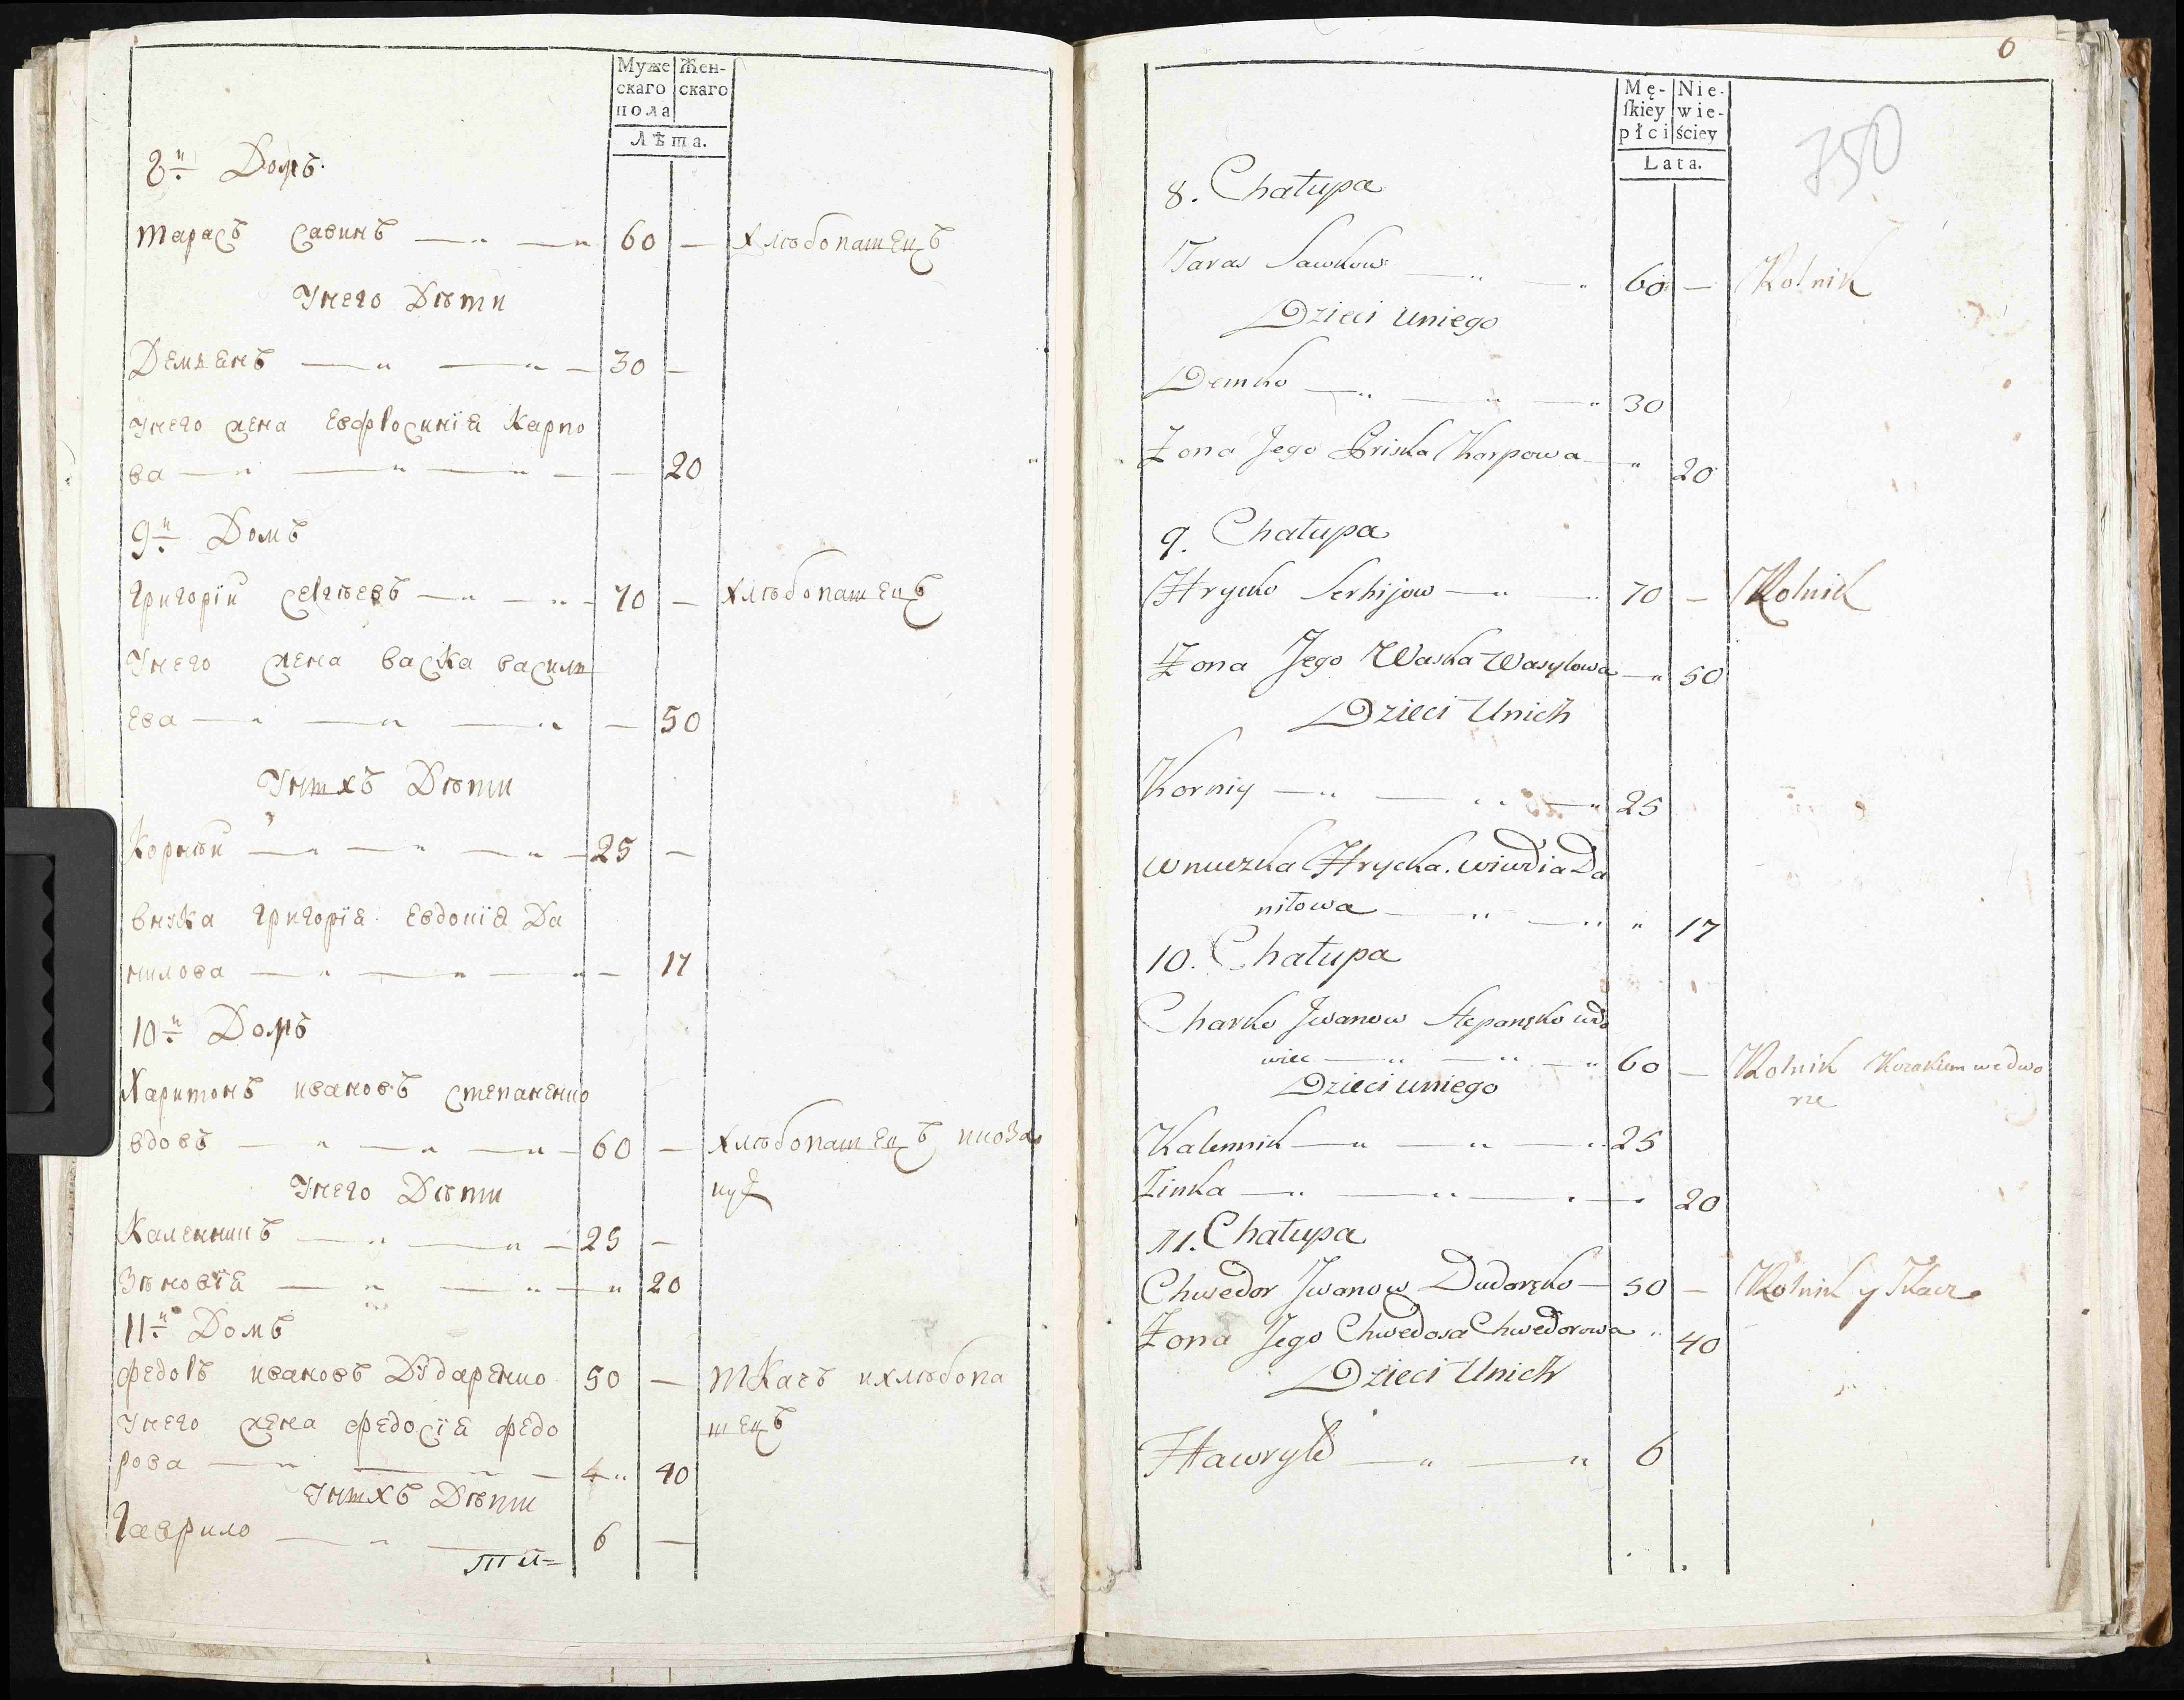 Муже
скаго
пола
Жен-
скаго
Лѣта.
8й Домъ
тарасъ савинъ — „ — „ 60 — хлѣбопашецъ
Унего Дѣти
Демьянъ — „ — „ — 30 —
Унего жена евфросинїя Карпо
ва — „ — „ — — 20
9й Домъ
григорїй сергѣевъ — „ — „ 70 — хлѣбопашецъ
Унего жена васка василь
ева — „ — „ — „ — 50
Унихъ Дѣти
Корнѣй — „ — „ — „ 25 —
внука григорїя евдокїя Да
нилова — „ — „ — „ — 17
10й Домъ
Харитонъ ивановъ степаненко
вдовъ — „ — „ — „ 60 — хлѣбопашецъ икоза
Унего Дѣти
Каленникъ — „ — „ — 25 —
Зѣновїя — „ — „ — „ 20
11й Домъ
федоръ ивановъ Дударенко 50 — ткачъ ихлѣбопа
шецъ
Унего жена федосїя федо
рова — „ — „ — „ 40
Унихъ Дѣти
гаврило — „ — 6 —
6
750
Mę-
ſkiey
płci
Nie-
wie-
ściey
Lata.
8. Chałupa
Taras Sawkow — „ — „ 60 — Rolnik
Dzieci uniego
Demko — „ — „ — „ 30
Żona Jego Priska Karpowa — „ 20
9. Chałupa
Hrycko Serhijow — „ — „ 70 — Rolnik
Żona Jego Waska Wasylowa — „ 50
Dzieci Unich
Korniy — „ — „ — „ 25
wnuczka Hrycka. wiwdia Da
niłowa — „ — „ „ 17
10. Chałupa
Charko Jwanow Stepanęko wdo
wiec — „ — „ — „ 60 — Rolnik Kozakiem we dwo
rze
Dzieci uniego
Kalennik — „ — „ — „ 25
Zinka — „ — „ — „ 20
11. Chałupa
Chwedor Jwanow Dudaręko — 50 — Rolnik y Tkacz
Żona Jego Chwedosa Chwedorowa „ 40
Dzieci Unich
Hawryło — „ — „ 6